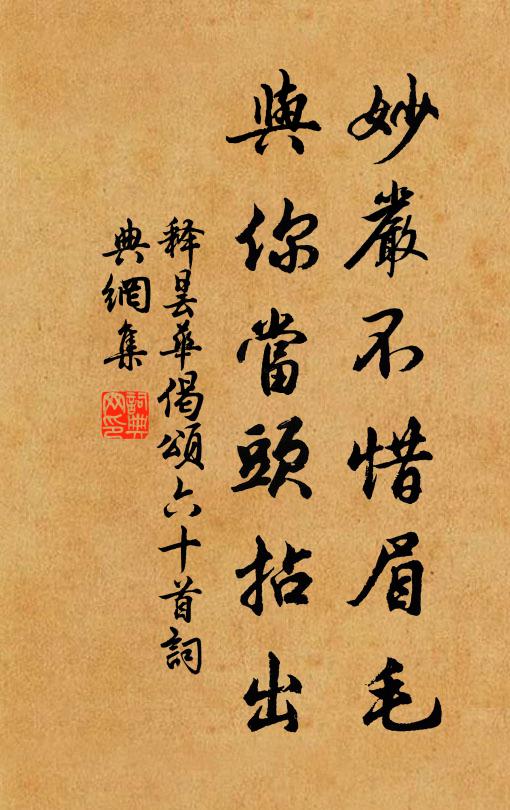 妙嚴不惜眉毛
與你當頭拈出
释曇華偈頌六十首詞
典網集
詞典
网印